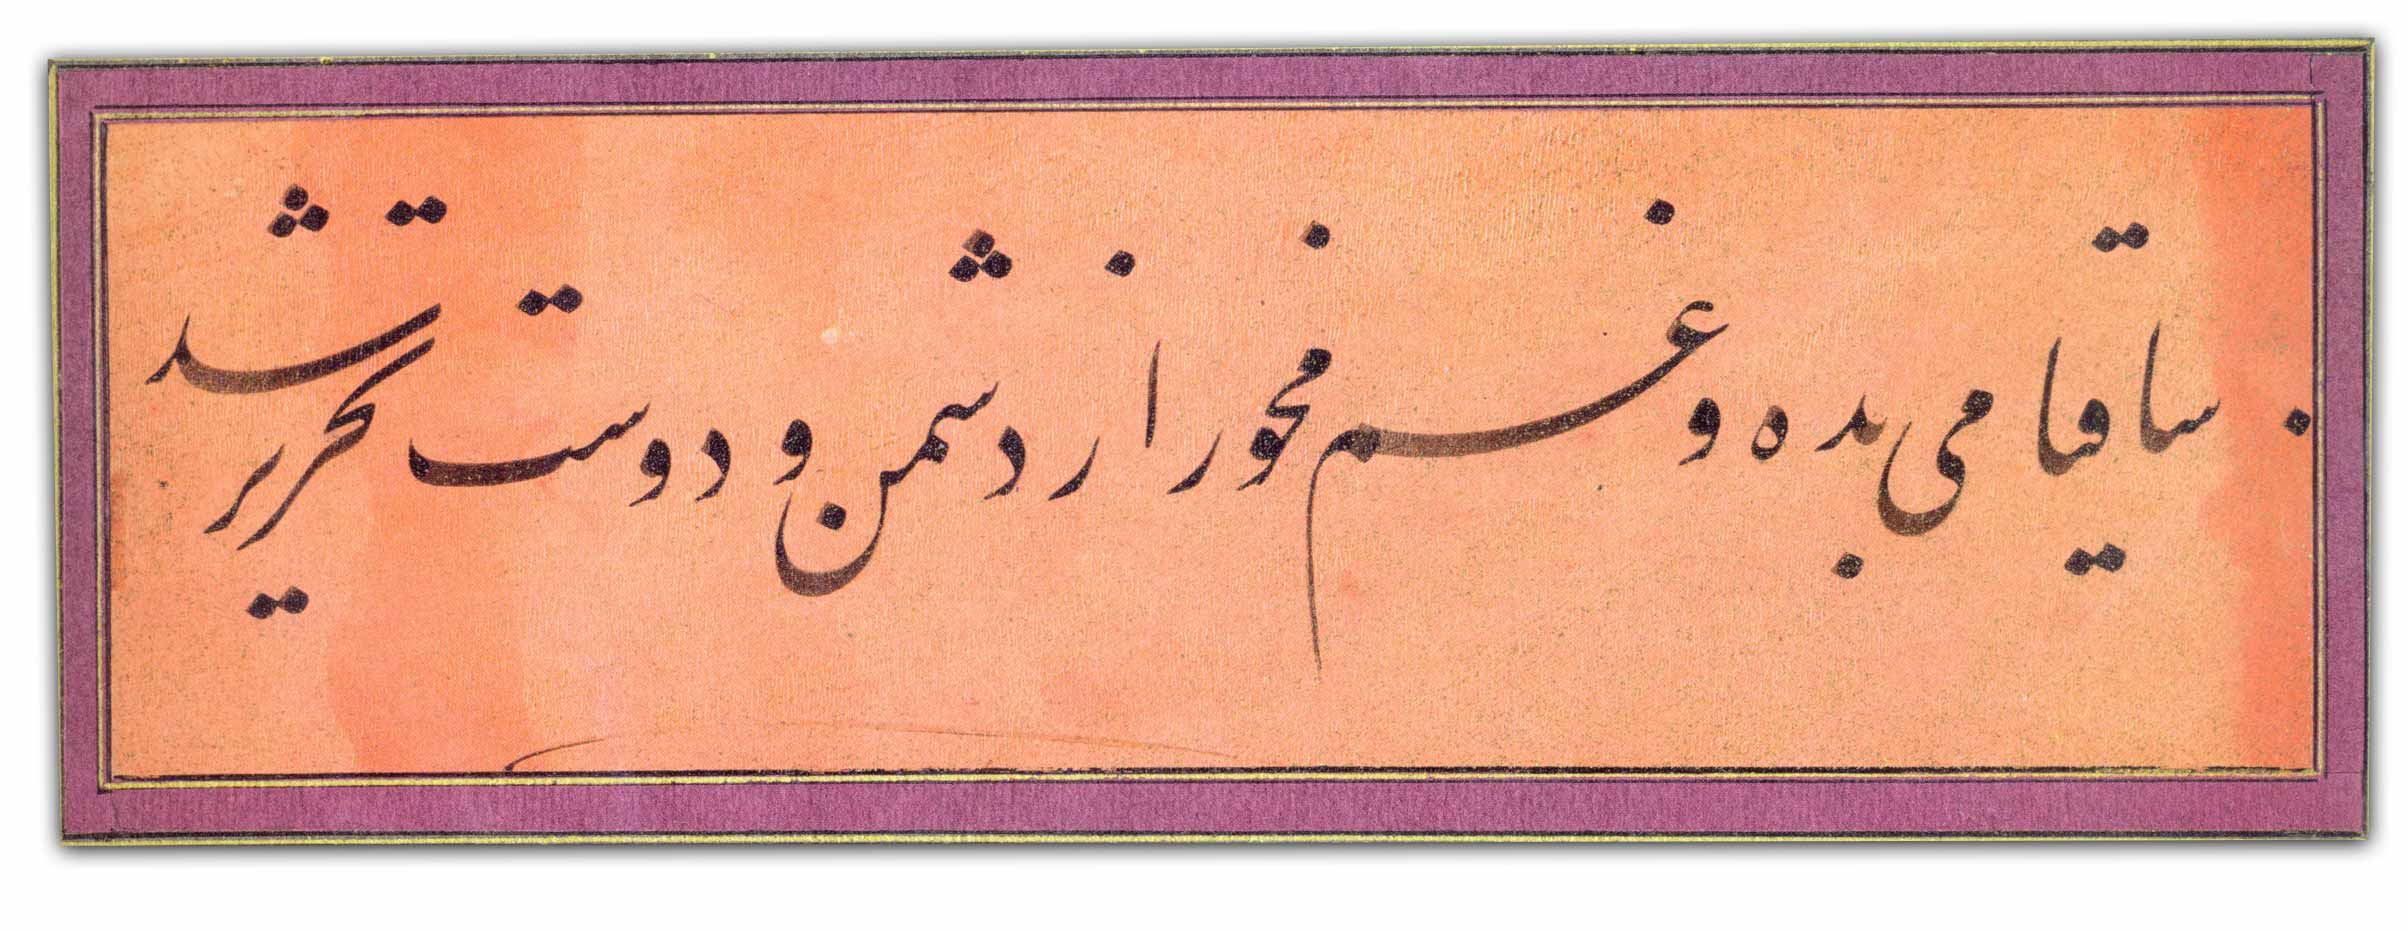 ساقیا می بده و غم مخور از دشمن و دوست تحریر شد